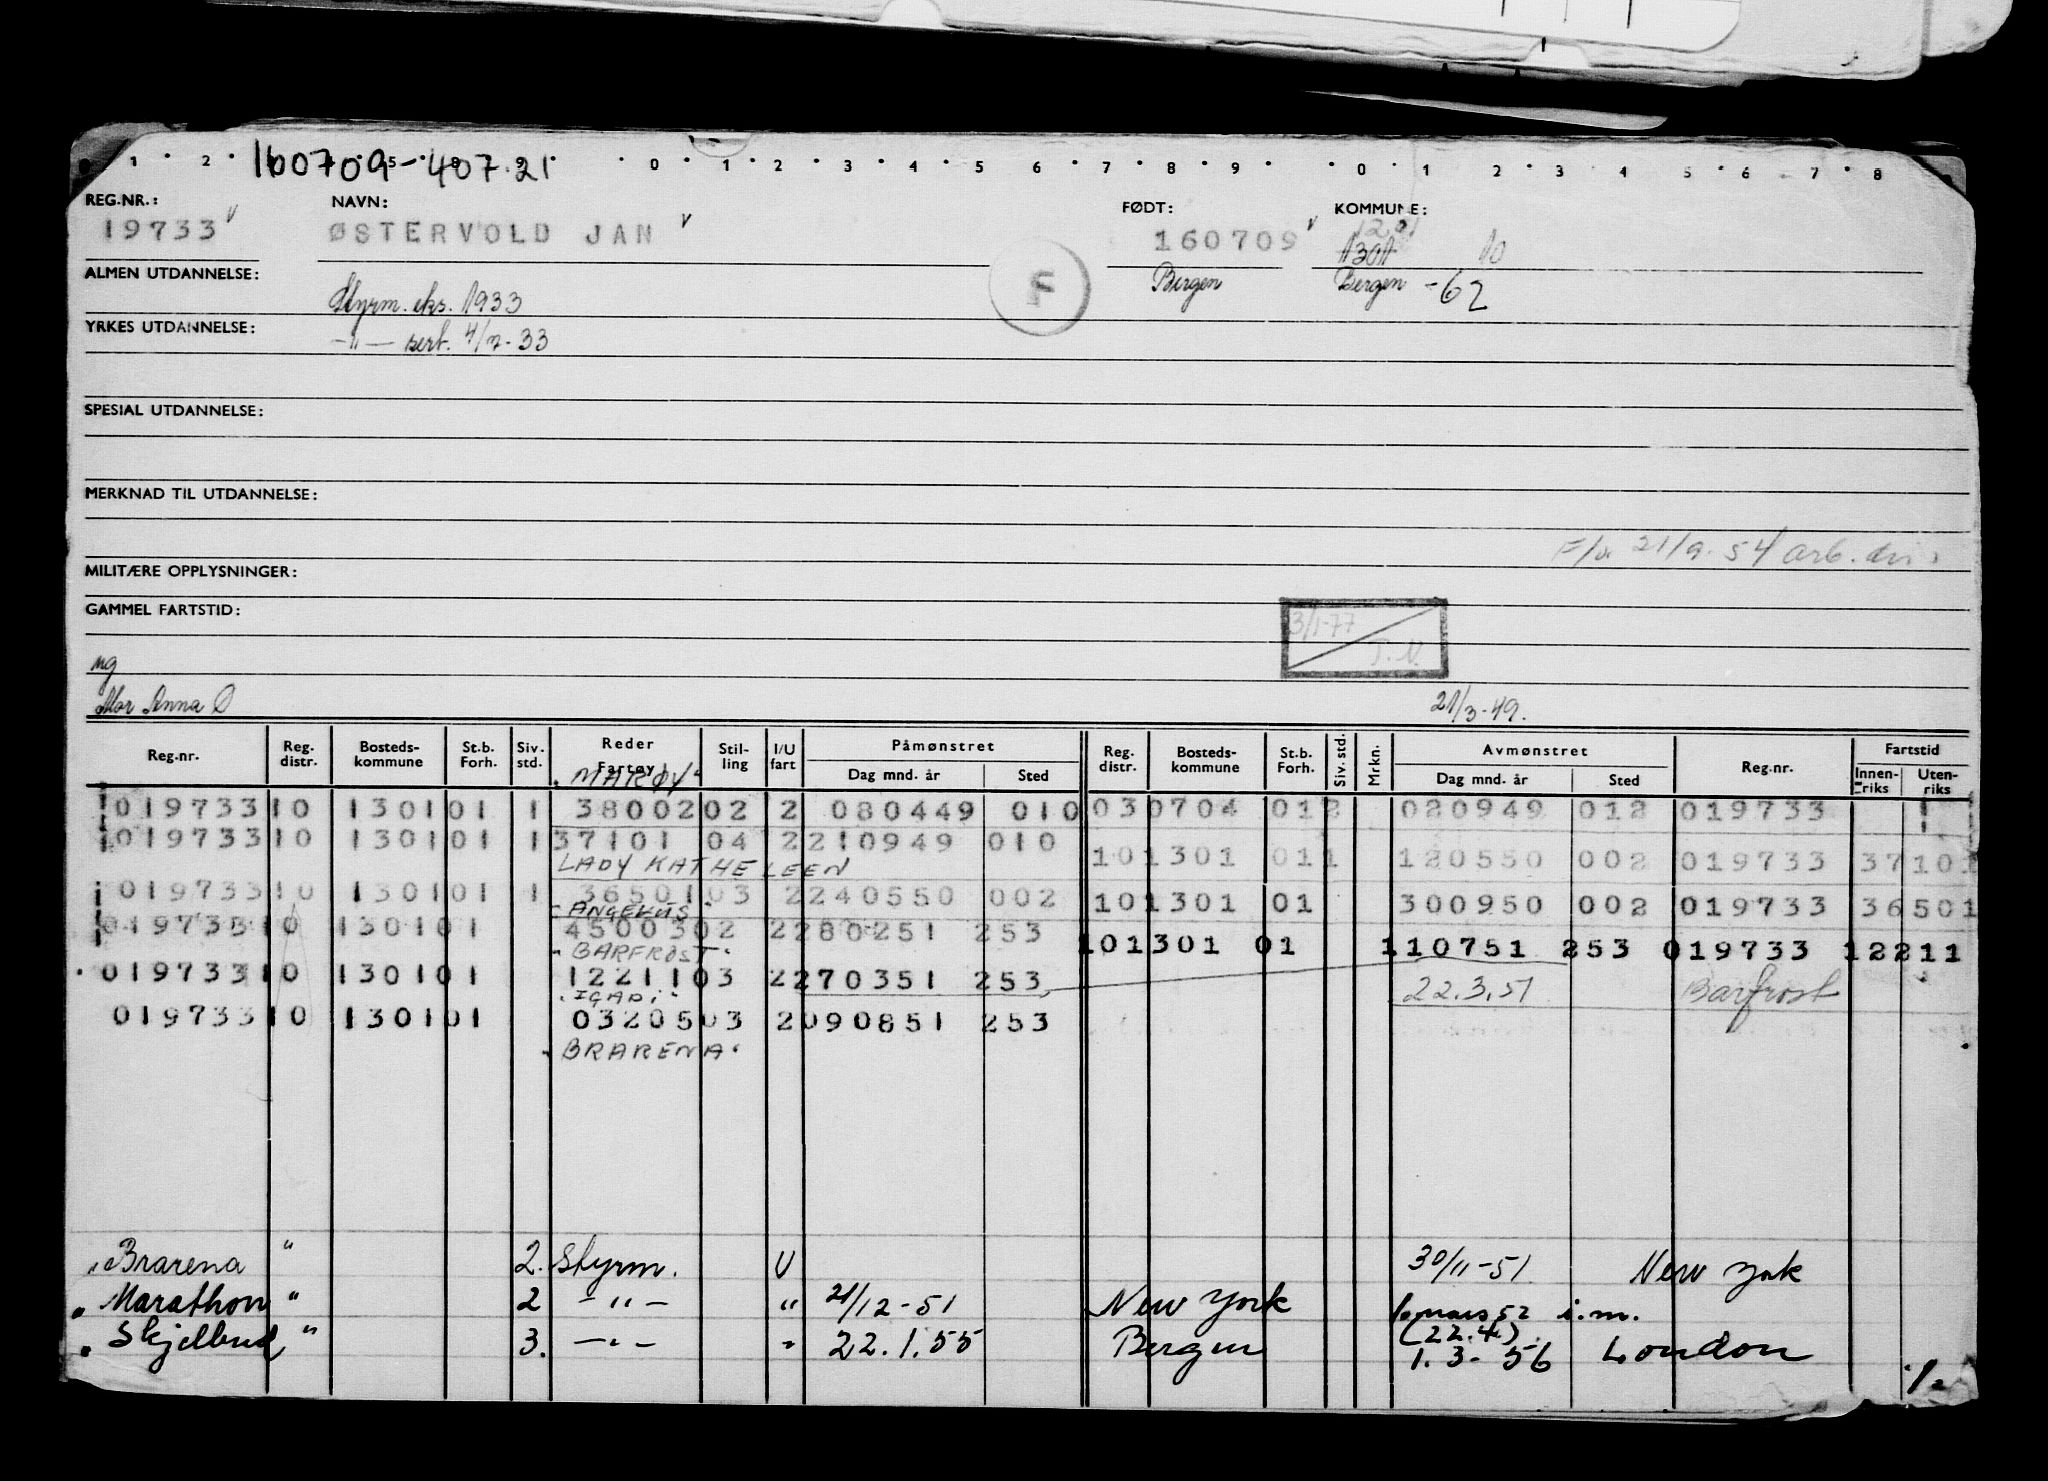 160709-407.21
1 2 5 8 9 0 1 2 3 4 5 6 7 8 9 0 1 2 3 4 5 6 7 8
REG.NR.: NAVN: FØDT: KOMMUNE:
1201
19733 ØSTERVOLD JAN 160709 1301 10
ALMEN UTDANNELSE: F Bergen Bergen -62
Styrm. eks. 1933
YRKES UTDANNELSE: -"- sert. 4/7-33
SPESIAL UTDANNELSE:
MERKNAD TIL UTDANNELSE:
21/9.54 arb.
MILITÆRE OPPLYSNINGER:
GAMMEL FARTSTID:
3/1-77
ug
Mor Anna Ø 21/3-49.
Reg.nr. Reg. distr. Bosteds-kommune St.b. Forh. Siv. std. Reder Fartøy Stil-ling I/U fart Påmønstret Dag mnd. år Sted Reg. distr. Bosteds-kommune St.b. Forh. Siv. std. Mrkn. Avmønstret Dag mnd. år Sted Reg.nr. Fartstid Innen-riks Uten-riks
"MARØY"
019733 10 1301 01 1 38002 02 2 080449 010 03 0704 01 2 020949 012 019733
019733 10 1301 01 1 37101 04 2 210949 010
LADY KATHELEEN 10 1301 01 1 120550 002 019733 37101
019733 10 1301 01 1 36501 03 2 240550 002 10 1301 01 300950 002 019733 36501
"ANGELUS"
019733 10 1301 01 45003 02 2 280251 253
"BARFROST" 10 1301 01 110751 253 019733 12211
019733 10 1301 01 12211 03 2 270351 253 22.3.51 Barfrost
"IGADI"
019733 10 1301 01 03205 03 2 090851 253
"BRARENA"
"Brarena" 2. Styrm. U 30/11-51 New York
"Marathon" 2 -"- " 21/12-51 New York 6 mars 52 i.m.
(22.4)
"Skjelbred" 3. -"- " 22.1.55 Bergen 1.3-56 London